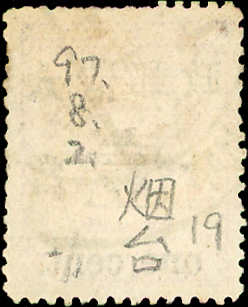 97.
8.
2.
烟台
19